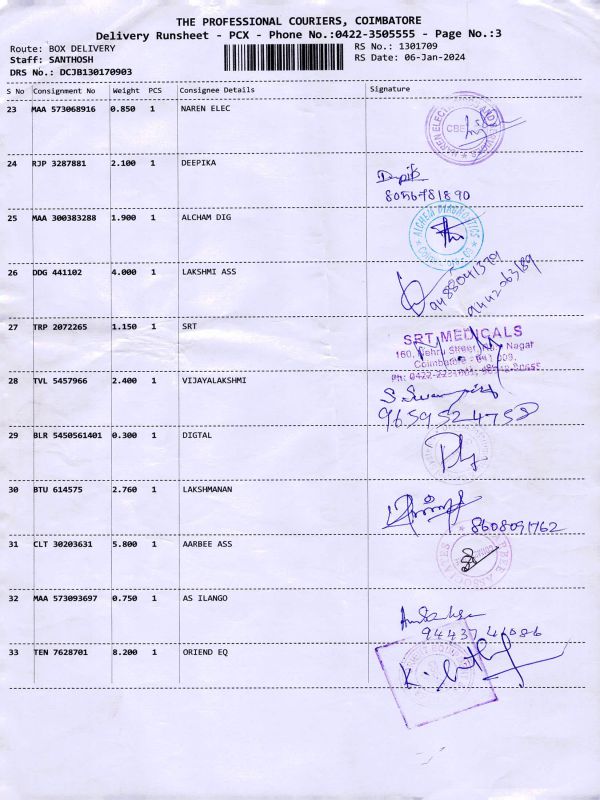 THE PROFESSIONAL COURIERS, COIMBATORE
Delivery Runsheet - PCX - Phone No.:0422-3505555 - Page No.:3
Route: BOX DELIVERY RS No.: 1301709
Staff: SANTHOSH RS Date: 06-Jan-2024
DRS No.: DCJB130170903
S No Consignment No Weight PCS Consignee Details Signature
23 MAA 573068916 0.850 1 NAREN ELEC
CBE
24 RJP 3287881 2.100 1 DEEPIKA
8056781890
25 MAA 300383288 1.900 1 ALCHAM DIG
ALCHEM DIAGNOSTICS
26 DDG 441102 4.000 1 LAKSHMI ASS
9488041379
9442263189
27 TRP 2072265 1.150 1 SRT
SRT MEDICALS
160, Nehru Street, Nagar
Coimbatore - 641 009.
28 TVL 5457966 2.400 1 VIJAYALAKSHMI
9659524758
29 BLR 5450561401 0.300 1 DIGTAL
30 BTU 614575 2.760 1 LAKSHMANAN
8608091762
31 CLT 30203631 5.800 1 AARBEE ASS
32 MAA 573093697 0.750 1 AS ILANGO
94437 46086
33 TEN 7628701 8.200 1 ORIEND EQ